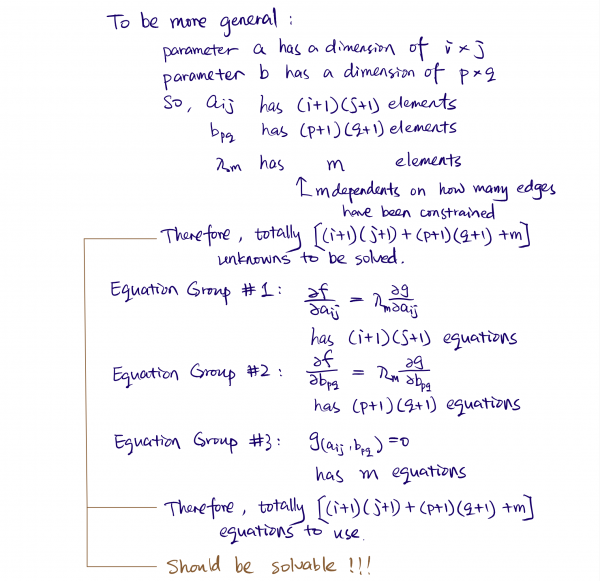 To be more general :
parameter a has a dimension of i × j
parameter b has a dimension of p × q
So, aij has (i+1)(j+1) elements
bpq has (p+1)(q+1) elements
λm has m elements
↑ m dependents on how many edges
have been constrained
Therefore, totally [(i+1)(j+1) + (p+1)(q+1) + m]
unknowns to be solved.
Equation Group #1: ∂f/∂aij = λm ∂g/∂aij
has (i+1)(j+1) equations
Equation Group #2: ∂f/∂bpq = λm ∂g/∂bpq
has (p+1)(q+1) equations
Equation Group #3: g(aij, bpq) = 0
has m equations
Therefore, totally [(i+1)(j+1) + (p+1)(q+1) + m]
equations to use.
Should be solvable !!!